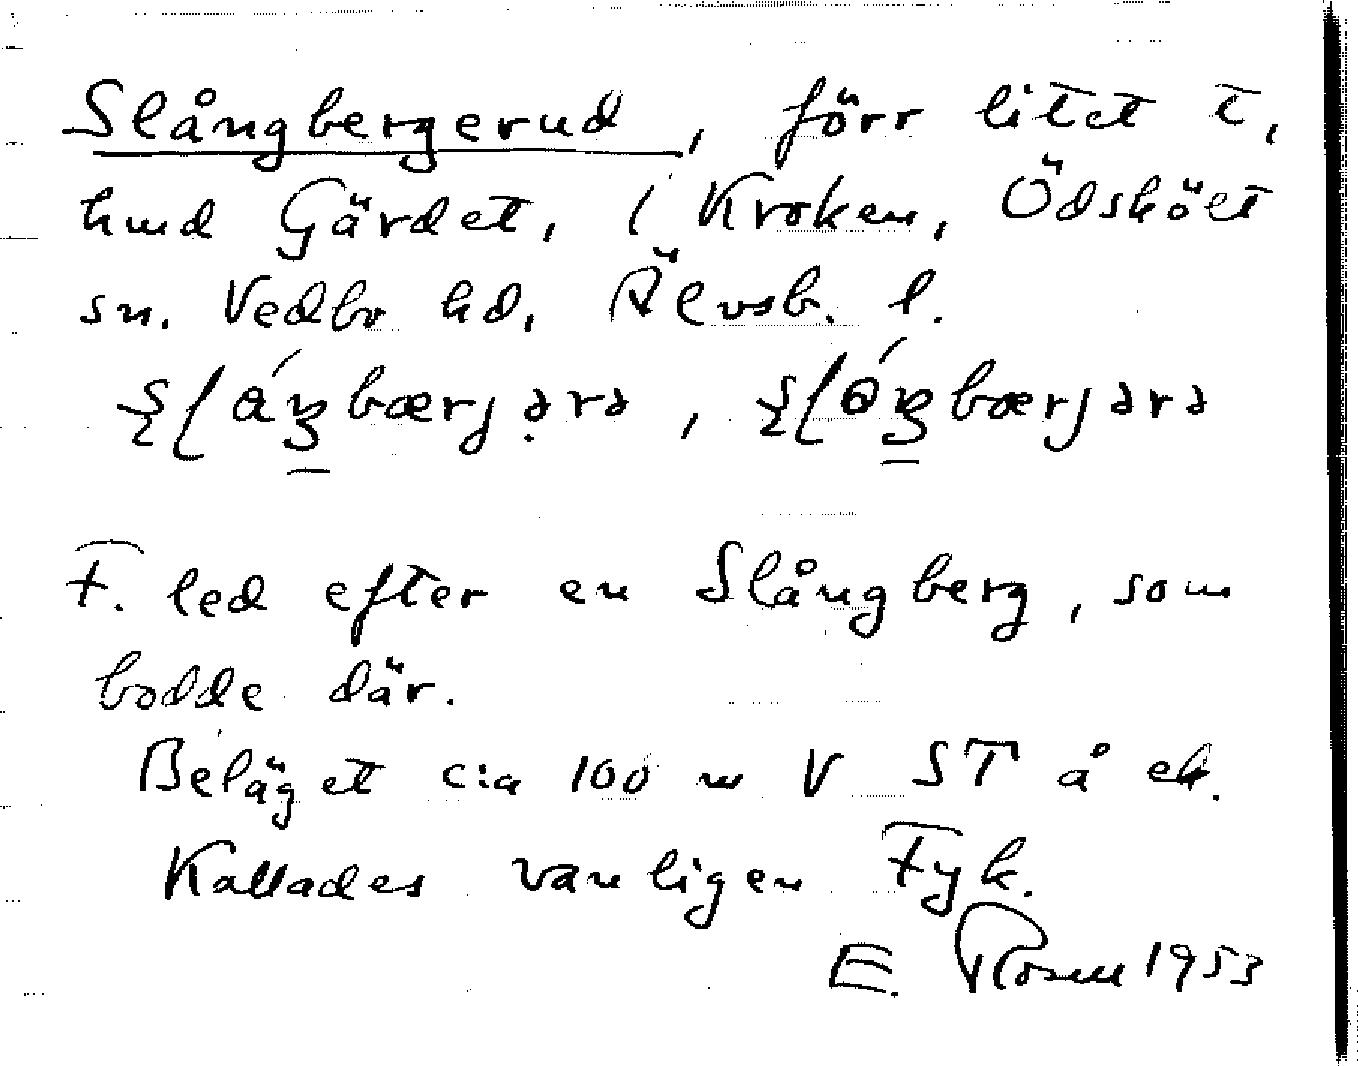 Slångbergerud, förr litet t,
hmd Gärdet, i Kroken, Ödskölt
sn. Vedbo hd, Älvsb. l.
bærjərə, bærjərə
F. led efter en Slångberg, som
bodde där.
Beläget c:a 100 m V ST å ek.
Kallades vanligen Fyk.
E. Rosen 1953